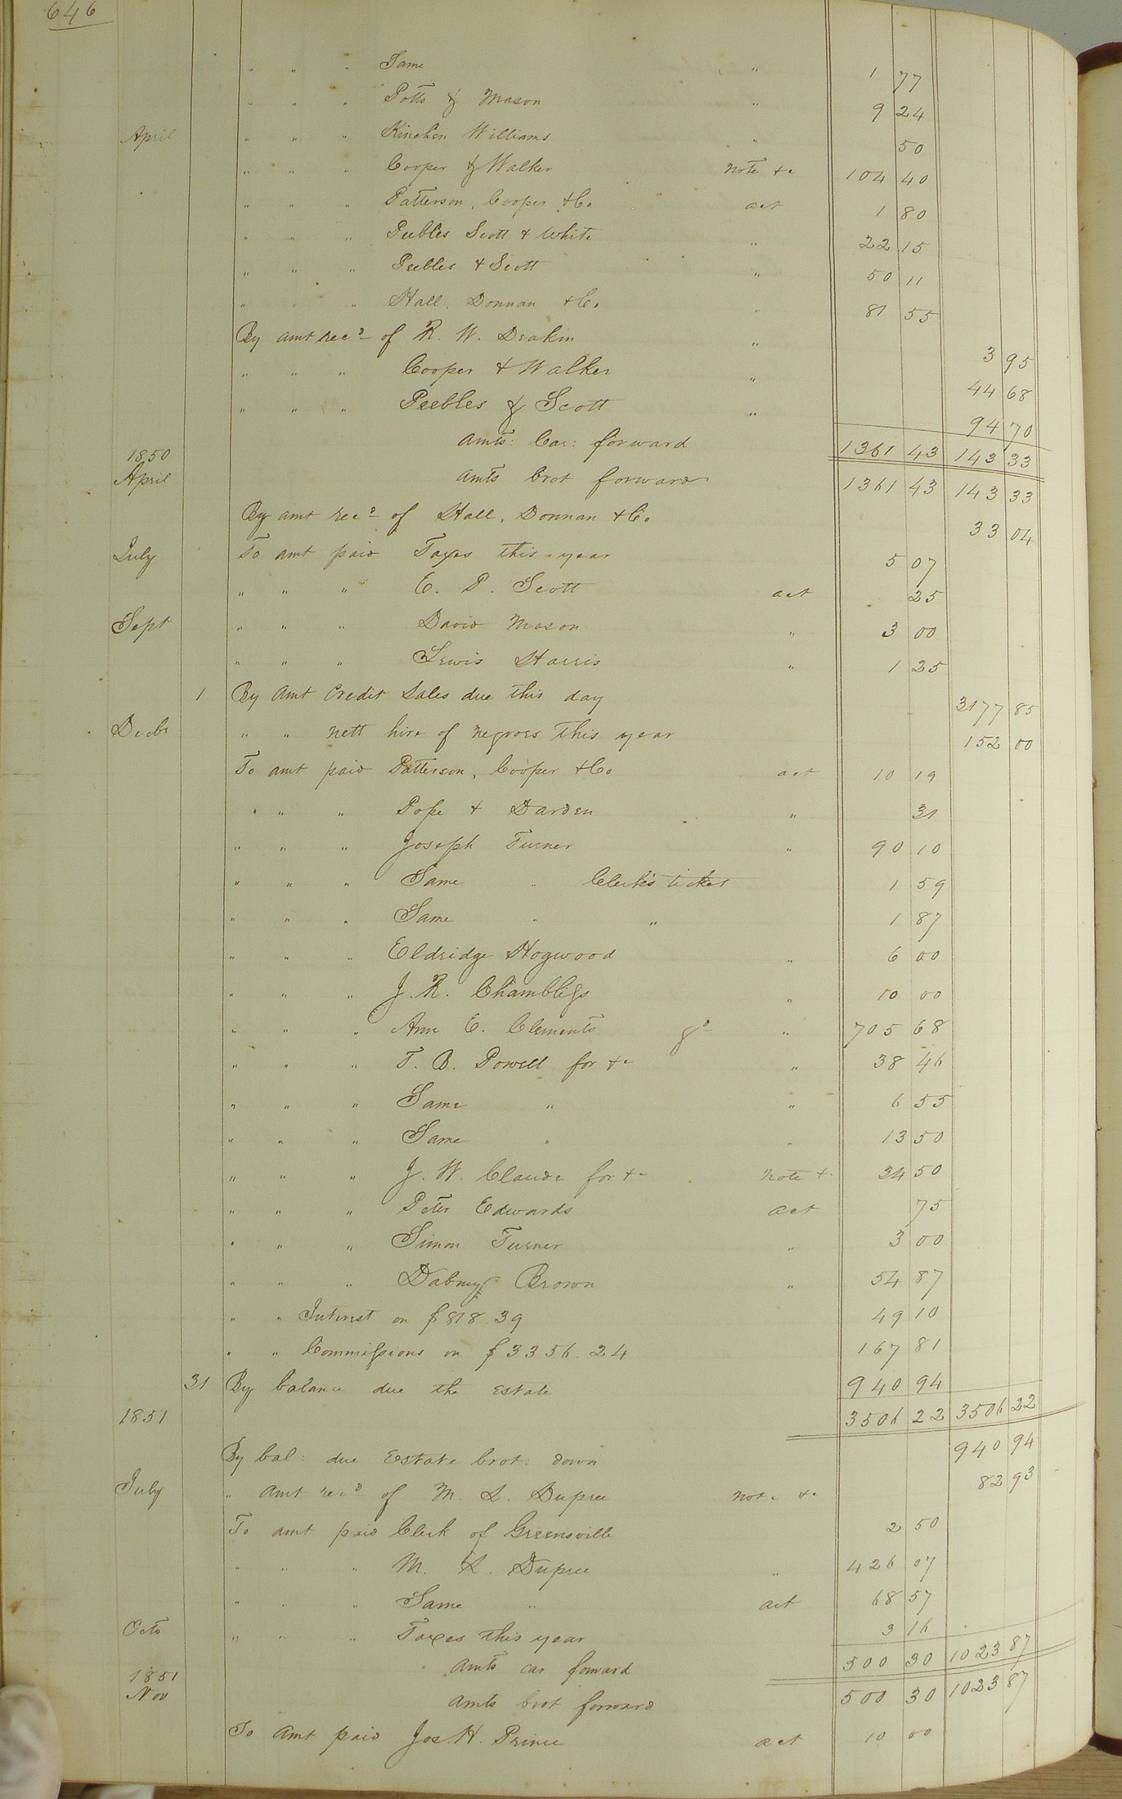 646
" " " Same " 1 77
" " " Potts & Mason " 9 24
April " " " Kinchen Williams " 50
" " " Cooper & Walker note &c 104 40
" " " Patterson, Cooper & Co act 1 80
" " " Peebles Scott & White " 22 15
" " " Peebles & Scott " 50 11
" " " Hall, Donnan & Co. " 81 55
By amt recd of R. W. Deakin " 3 95
" " " Cooper & Walker " 44 68
" " " Peebles & Scott " 94 70
amts: Car: forward 1361 43 143 33
1850
April amts brot forward 1361 43 143 33
By amt recd of Hall, Donnan & Co 33 04
July To amt paid Taxes this year 5 07
" " " E. P. Scott act 25
Sept " " " David Mason " 3 00
" " " Lewis Harris " 1 25
1 By amt Credit Sales due this day 3177 85
Decbr " " nett hire of negroes this year 152 00
To amt paid Patterson, Cooper & Co act 10 19
" " " Pope & Darden " 31
" " " Joseph Turner " 90 10
" " " Same " Clerk's ticket 1 59
" " " Same " " 1 87
" " " Eldridge Hogwood " 6 00
" " " J. R. Chambliss " 10 00
" " " Ann E. Clements gd " 705 68
" " " T. B. Powell for &c " 38 46
" " " Same " " 6 55
" " " Same " " 13 50
" " " J. W. Claude for &c note & 34 50
" " " Peter Edwards act 75
" " " Simon Turner " 3 00
" " " Dabney Brown " 54 87
" " Interest on $818 39 49 10
" " Commissions on $3356.24 167 81
31 By balance due the Estate 940 94
1851 3506 22 3506 22
By bal: due Estate brot: down 940 94
July " amt recd of M. L. Dupree note &c 82 93
To amt paid Clerk of Greensville 2 50
" " " M. L. Dupree " 426 07
" " " Same " act 68 57
Octo " " " Taxes this year 3 16
amts car forward 500 30 1023 87
1851
Nov amts brot forward 500 30 1023 87
To amt paid Jos. H. Prince act 10 00